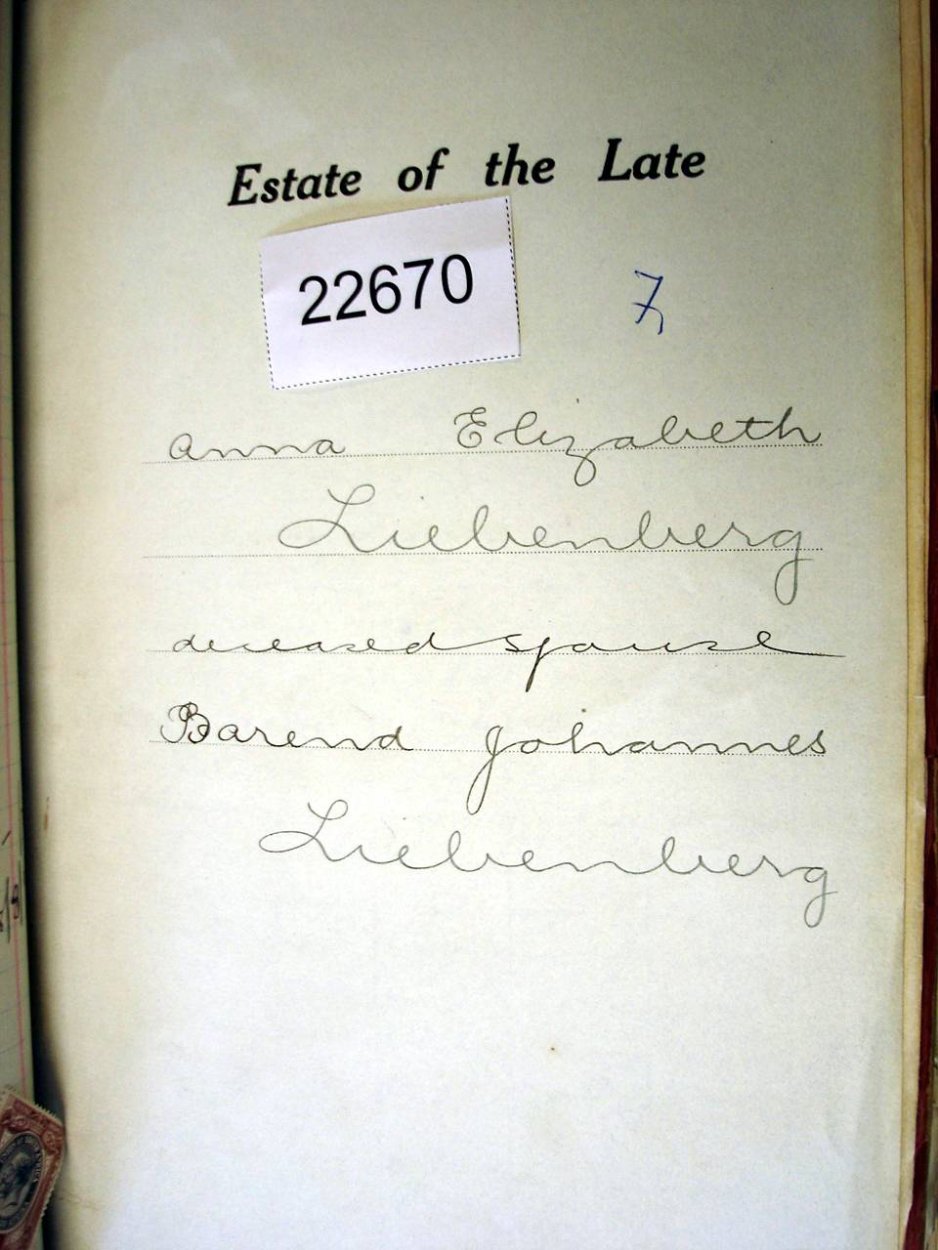 Estate of the Late
22670
7
Anna Elizabeth
Liebenberg
deceased spouse
Barend Johannes
Liebenberg